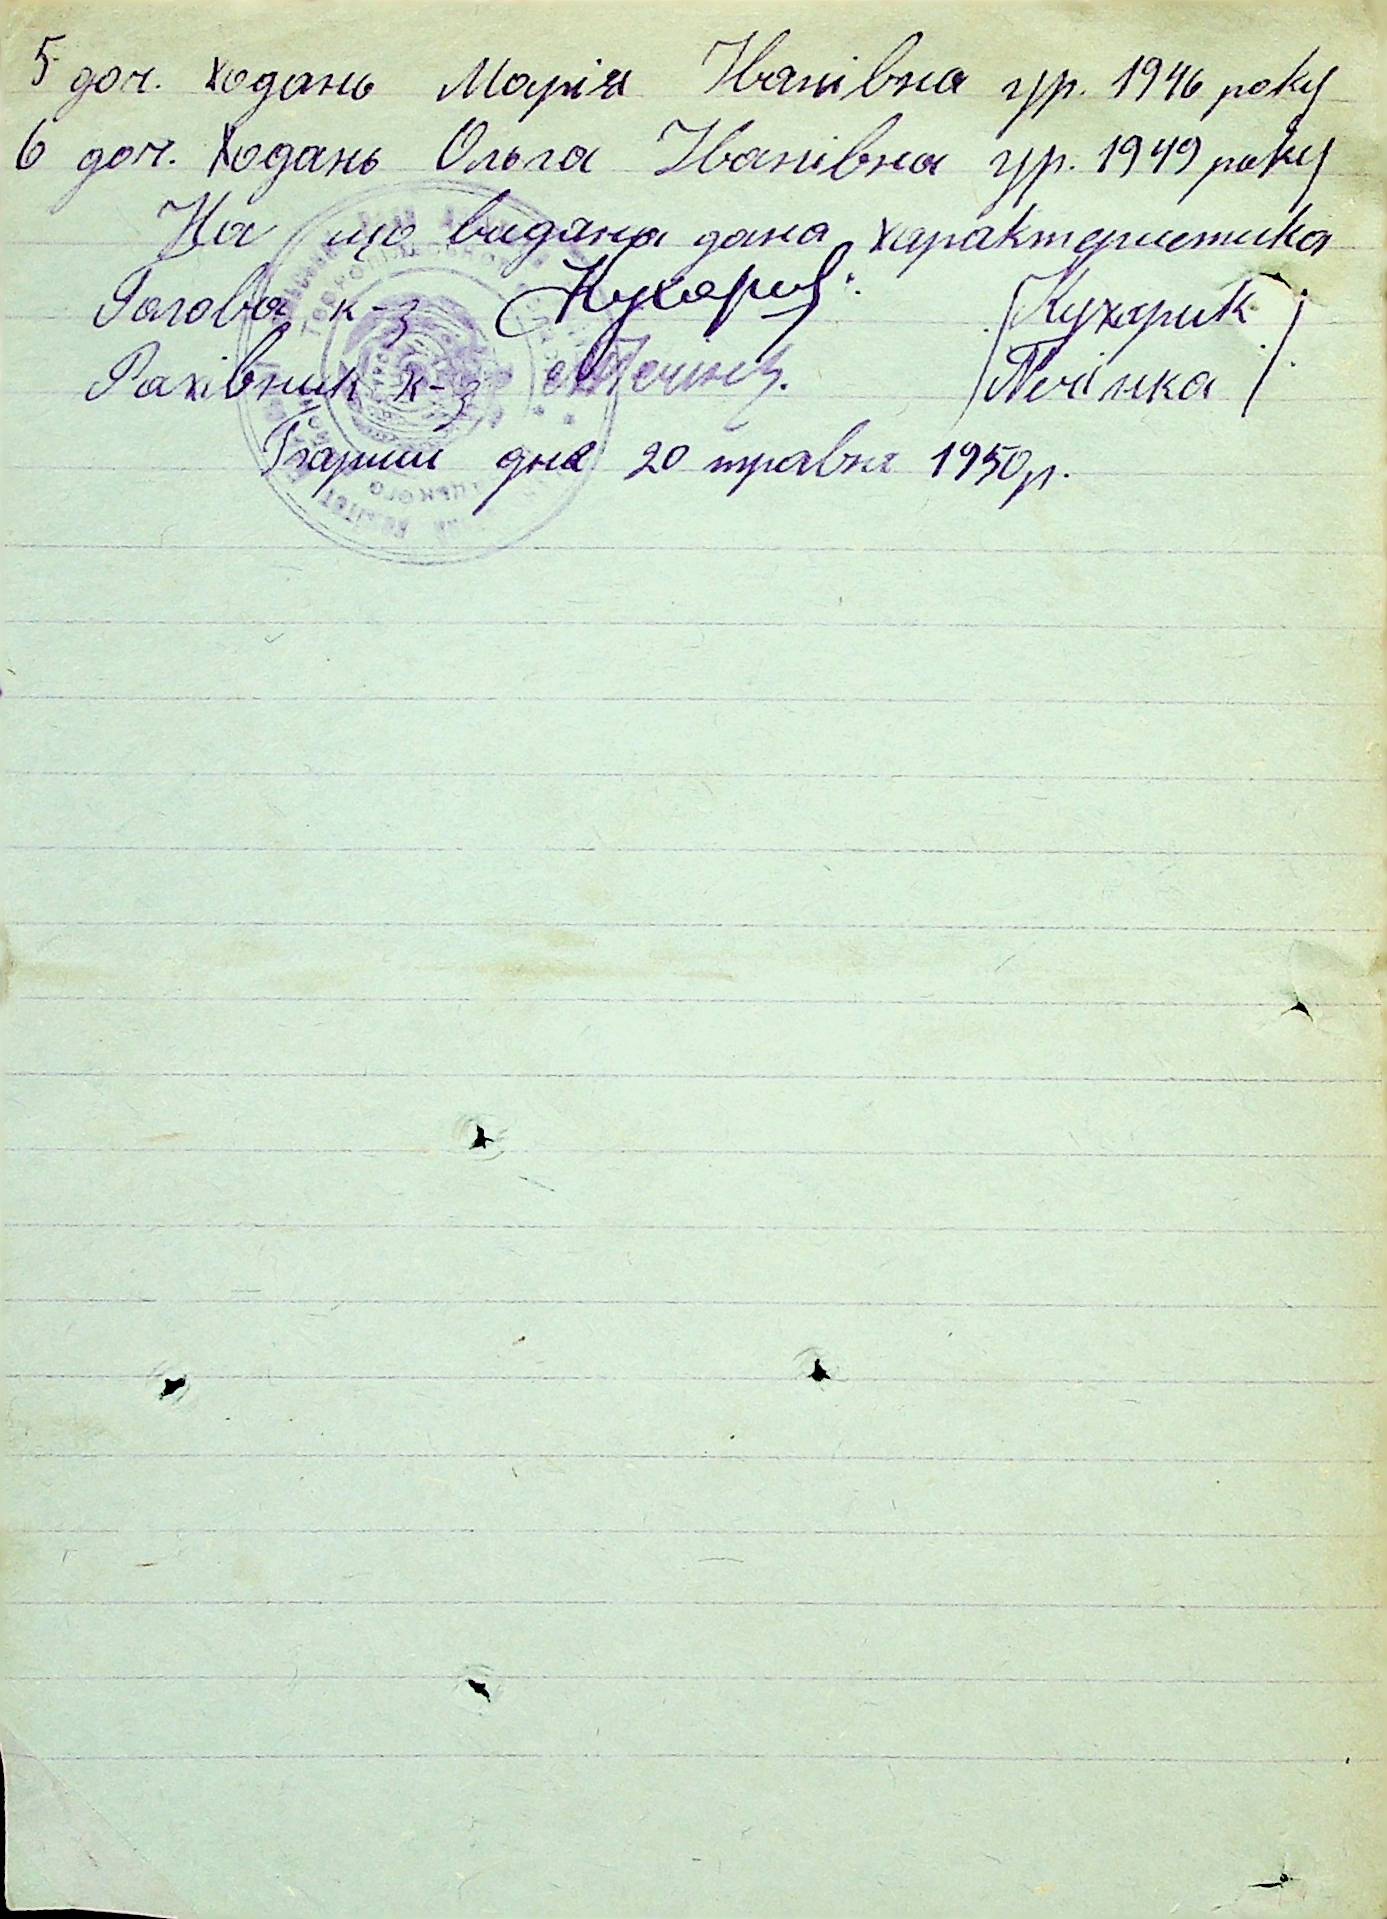 5 доч. Ходань Марія Іванівна г/р. 1946 року
6 доч. Ходань Ольга Іванівна г/р. 1949 року
На що видана дана характеристика
Голова к-з Кухарик (Кухарик)
Рахівник к-з Печінка (Печінка)
дня 20 травня 1950 р.